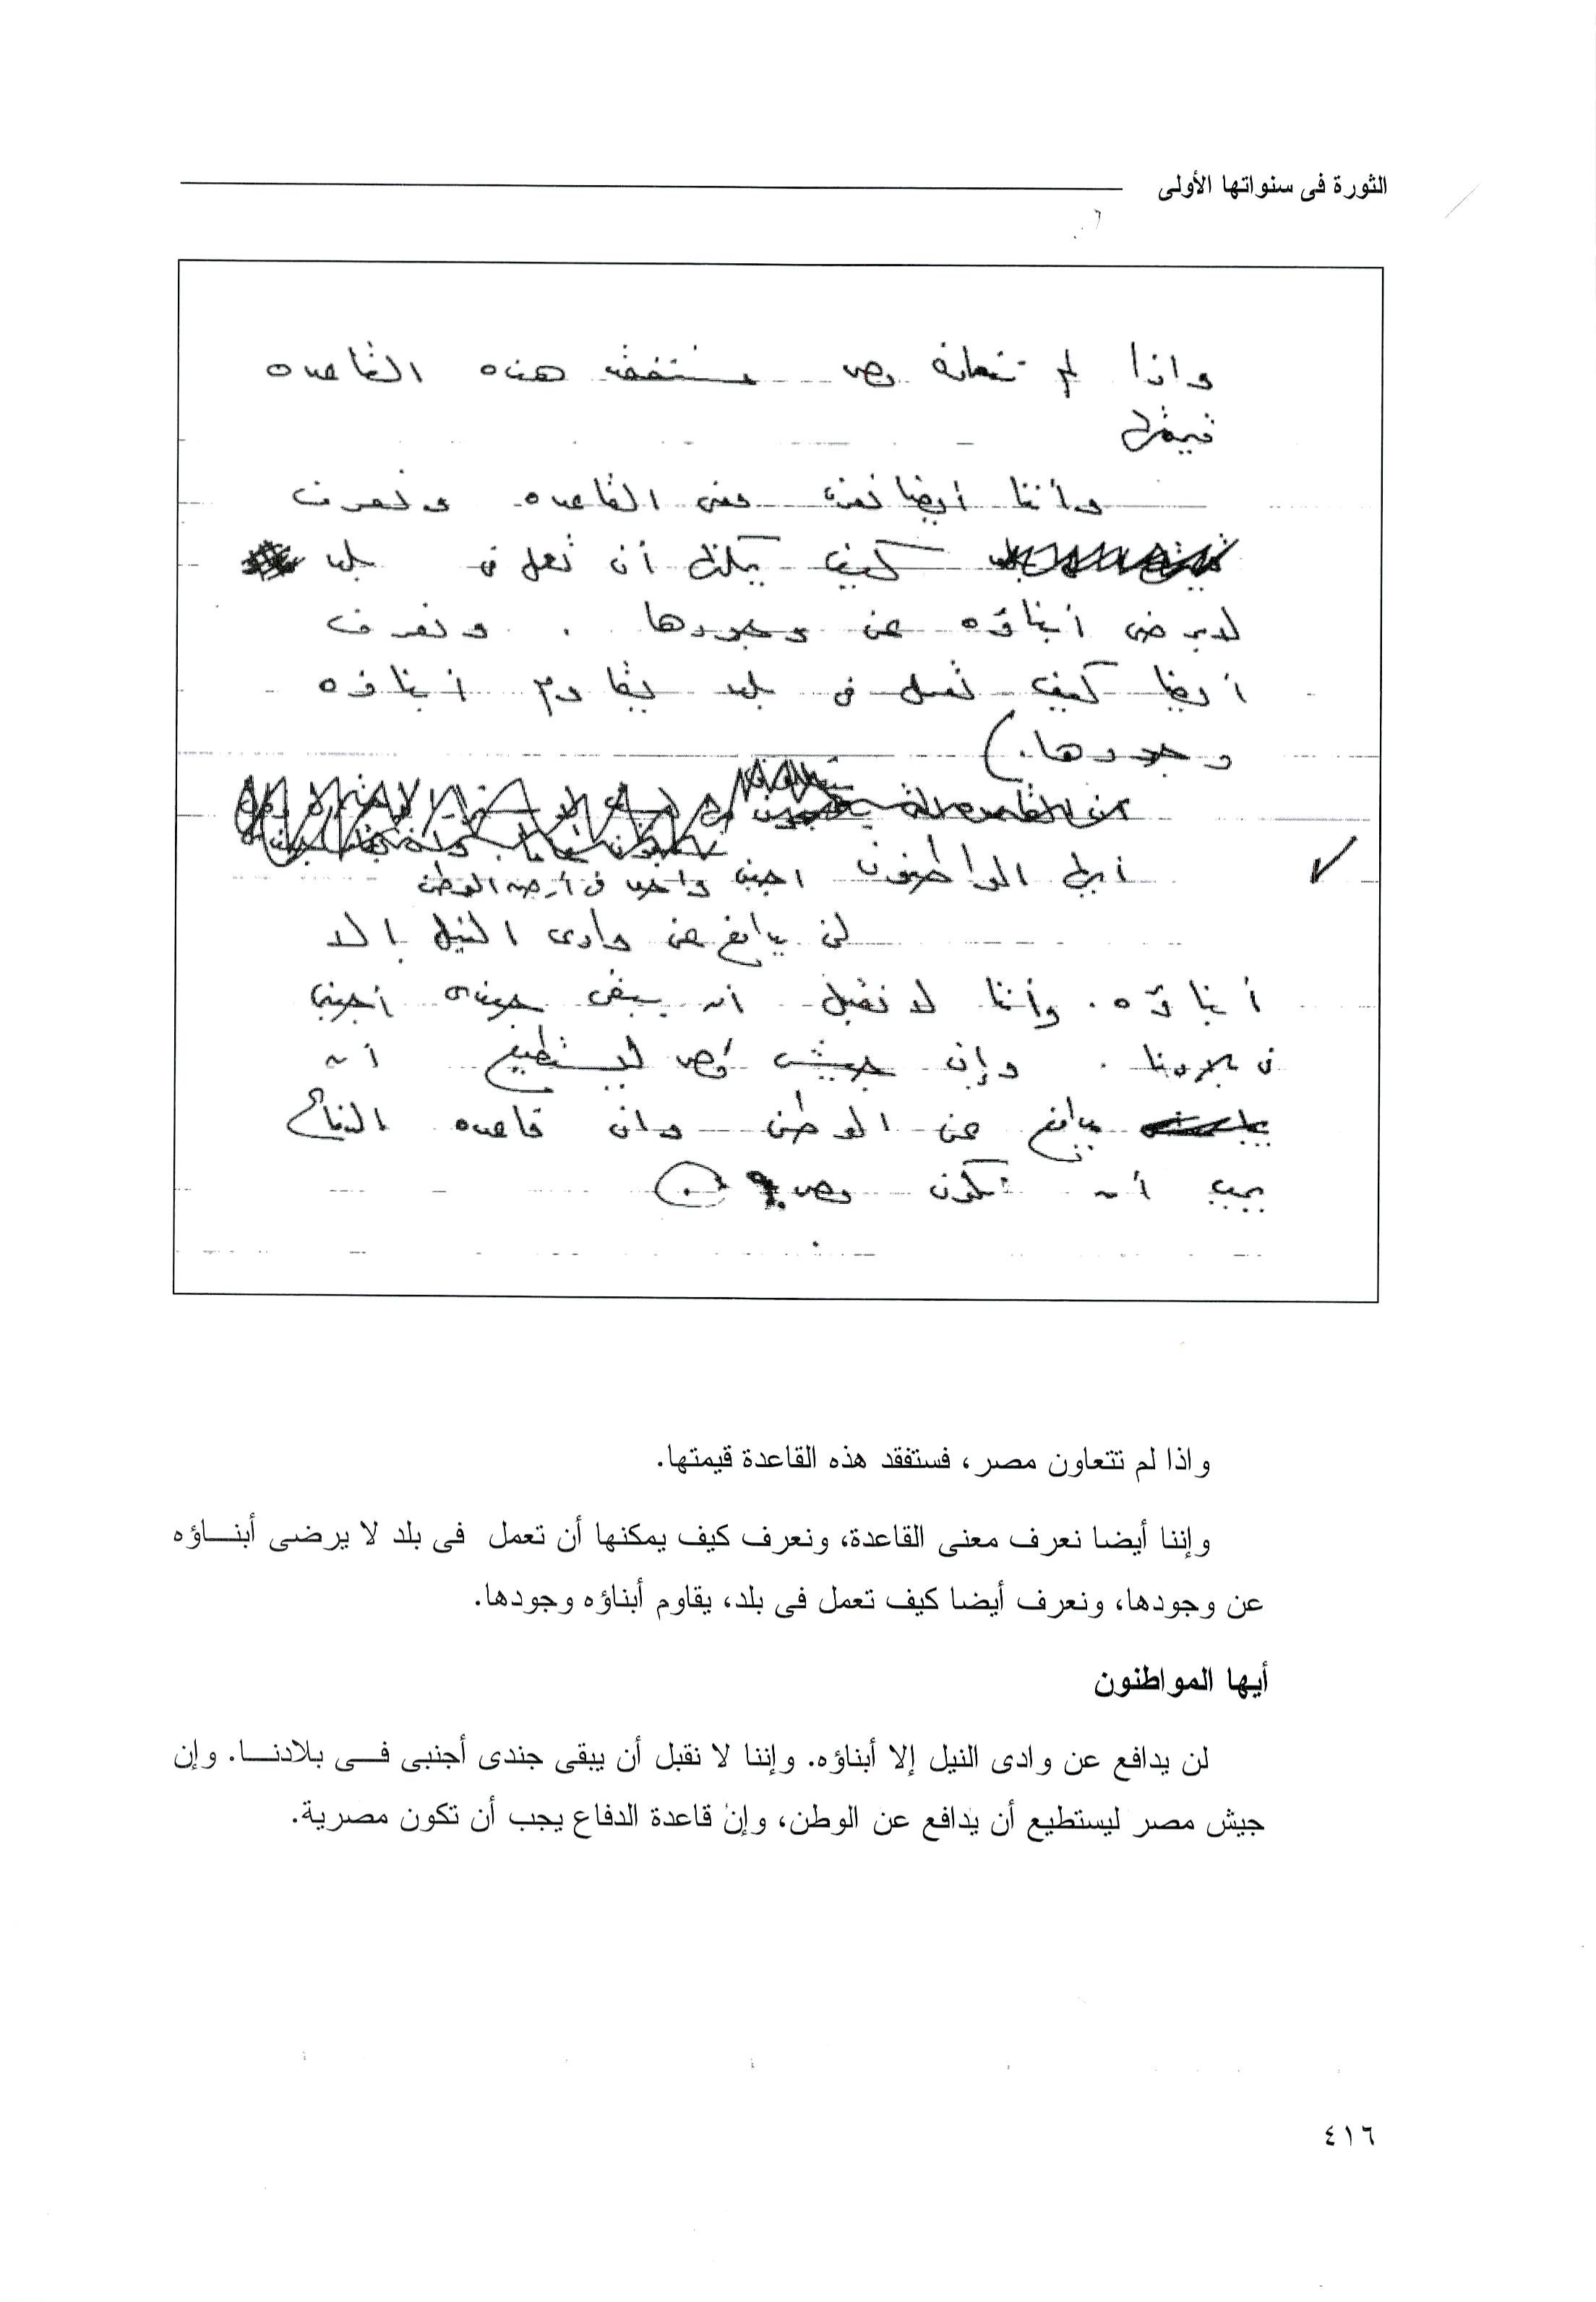 الثورة فى سنواتها الأولى
واذا لم تتعاون مصر ستفقد هذه القاعده
قيمتها
وأننا أيضا نعرف معنى القاعده ونعرف
كيف يمكنها أن تعمل فى بلد
لا يرضى أبناؤه عن وجودها . ونعرف
أيضا كيف تعمل فى بلد يقاوم أبناؤه
وجودها.)
أيها المواطنون اجنبى واحد فى أرض الوطن
لن يدافع عن وادى النيل إلا
أبناؤه . وأننا لا نقبل أن يبقى جندى أجنبى
فى بلادنا . وإن جيش مصر ليستطيع أن
يدافع عن الوطن وان قاعده الدفاع
يجب أن تكون مصرية
واذا لم تتعاون مصر، فستفقد هذه القاعدة قيمتها.
وإننا أيضا نعرف معنى القاعدة، ونعرف كيف يمكنها أن تعمل فى بلد لا يرضى أبنــاؤه
عن وجودها، ونعرف أيضا كيف تعمل فى بلد، يقاوم أبناؤه وجودها.
أيها المواطنون
لن يدافع عن وادى النيل إلا أبناؤه. وإننا لا نقبل أن يبقى جندى أجنبى فــى بلادنــا. وإن
جيش مصر ليستطيع أن يدافع عن الوطن، وإن قاعدة الدفاع يجب أن تكون مصرية.
٤١٦